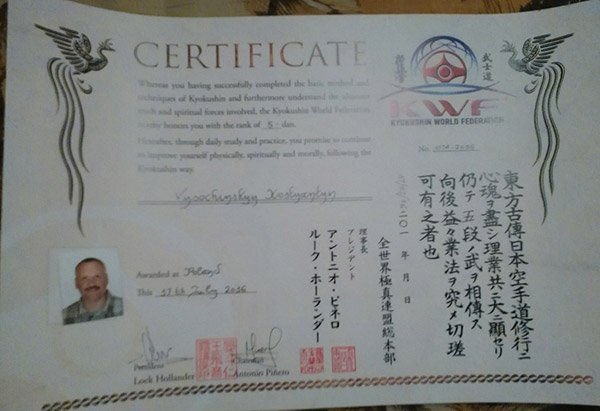 CERTIFICATE
Whereas you having successfully completed the basic method and
techniques of Kyokushin and furthermore understand the ultimate
truth and spiritual forces involved, the Kyokushin World Federation
hereby honors you with the rank of 5- dan.
Hereafter, through daily study and practice, you promise to continue
to improve yourself physically, spiritually and morally, following the
Kyokushin way.
Vysochynskyy Kostyantyn
Awarded at Poland
This 17th July 2016
President
Lock Hollander
Chairman
Antonio Piñero
武士道
KWF
KYOKUSHIN WORLD FEDERATION
No.
東方古傳日本空手道修行ニ
心魂ヲ盡シ理業共ニ大ニ顯セリ
仍テ五段ノ武ヲ相傳ス
向後益々業法ヲ究メ切瑳
可有之者也
二〇一 年 月 日
全世界極真連盟総本部
理事長
プレジデント
アントニオ・ピネロ
ルーク・ホーランダー